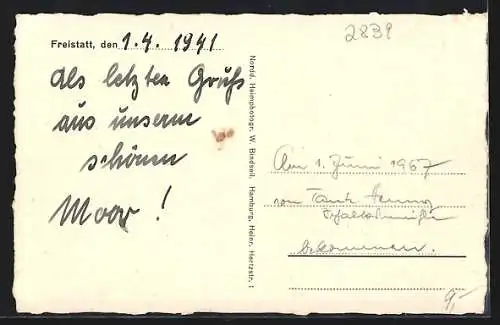 2839
Freistatt, den 1.4. 1941
Als letzten Gruß
aus unserm
schönen
Moor!
Nordd. Heimphotogr. W. Bindseil, Hamburg, Heinr. Hertzstr. 1
Am 1. Juni 1967
von Tante
bekommen.
9,-